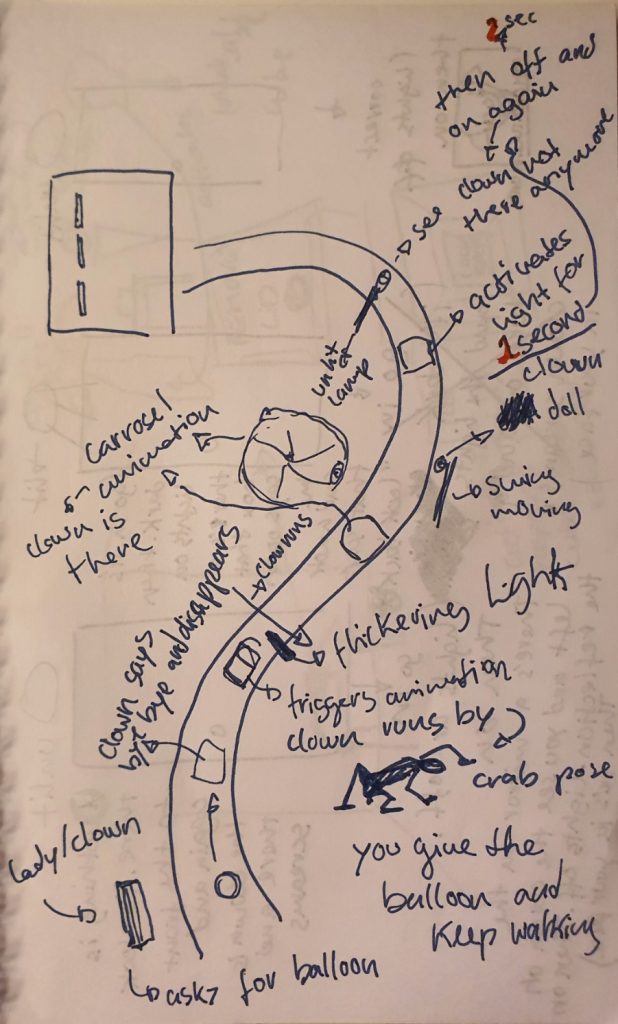 2 sec
then off and
on again
see clown not
there anymore
activates
light for
1 second
unlit
lamp
clown
doll
swing
moving
carrosel
animation
clown is
there
clown runs
flickering lights
triggers animation
clown runs by
crab pose
clown says
bye bye and disappears
you give the
balloon and
keep walking
lady/clown
asks for balloon